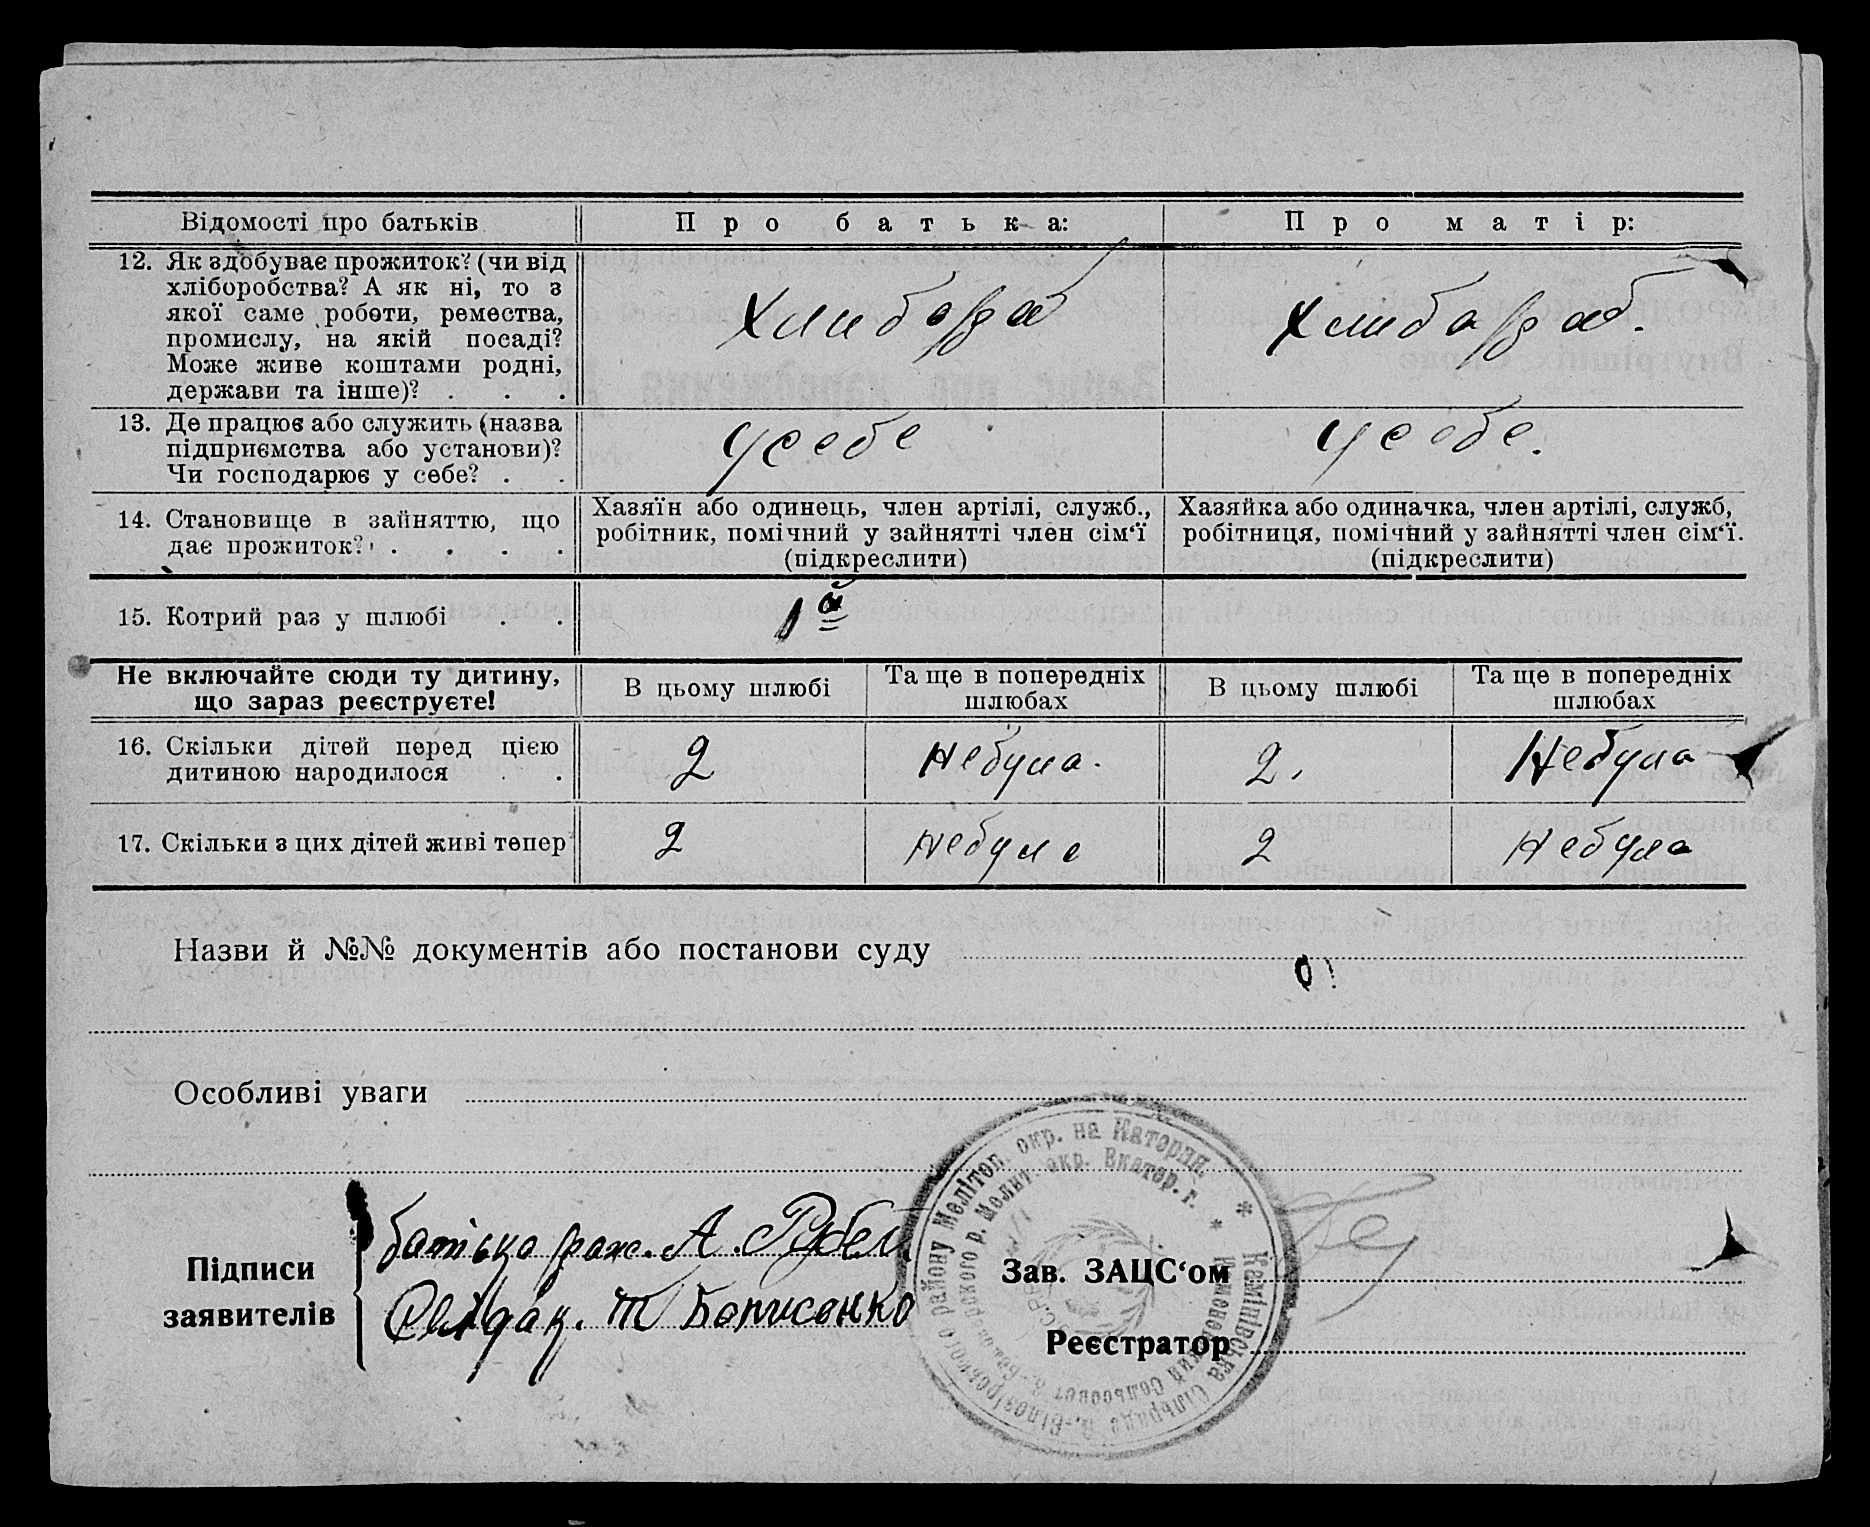 Відомості про батьків Про батька: Про матір:
12. Як здобуває прожиток? (чи від
хліборобства? А як ні, то з
якої саме роботи, ремества,
промислу, на якій посаді?
Може живе коштами родні,
держави та інше)? . . .
хлибораб хлибораб.
13. Де працює або служить (назва
підприємства або установи)?
Чи господарює у себе? . .
усебе усебе.
14. Становище в зайняттю, що
дає прожиток? . . . .
Хазяїн або одинець, член артілі, служб.,
робітник, помічний у зайнятті член сім‘ї
(підкреслити)
Хазяйка або одиначка, член артілі, служб,
робітниця, помічний у зайнятті член сім‘ї.
(підкреслити)
15. Котрий раз у шлюбі . . 1й
Не включайте сюди ту дитину,
що зараз реєструєте!
В цьому шлюбі Та ще в попередніх
шлюбах
В цьому шлюбі Та ще в попередніх
шлюбах
16. Скільки дітей перед цією
дитиною народилося . .
2 Небула. 2. Небула
17. Скільки з цих дітей живі тепер 2 Небула 2 Небула
Назви й №№ документів або постанови суду
Особливі уваги
Підписи
заявителів
батько А.
Т Борисенко
Зав. ЗАЦС‘ом
Реєстратор
району Мелітоп. окр. на Катерин. * Камінівська Сільрада В.-Білозірського
р. Мелит. окр. Екатер. г. * Сельсовет